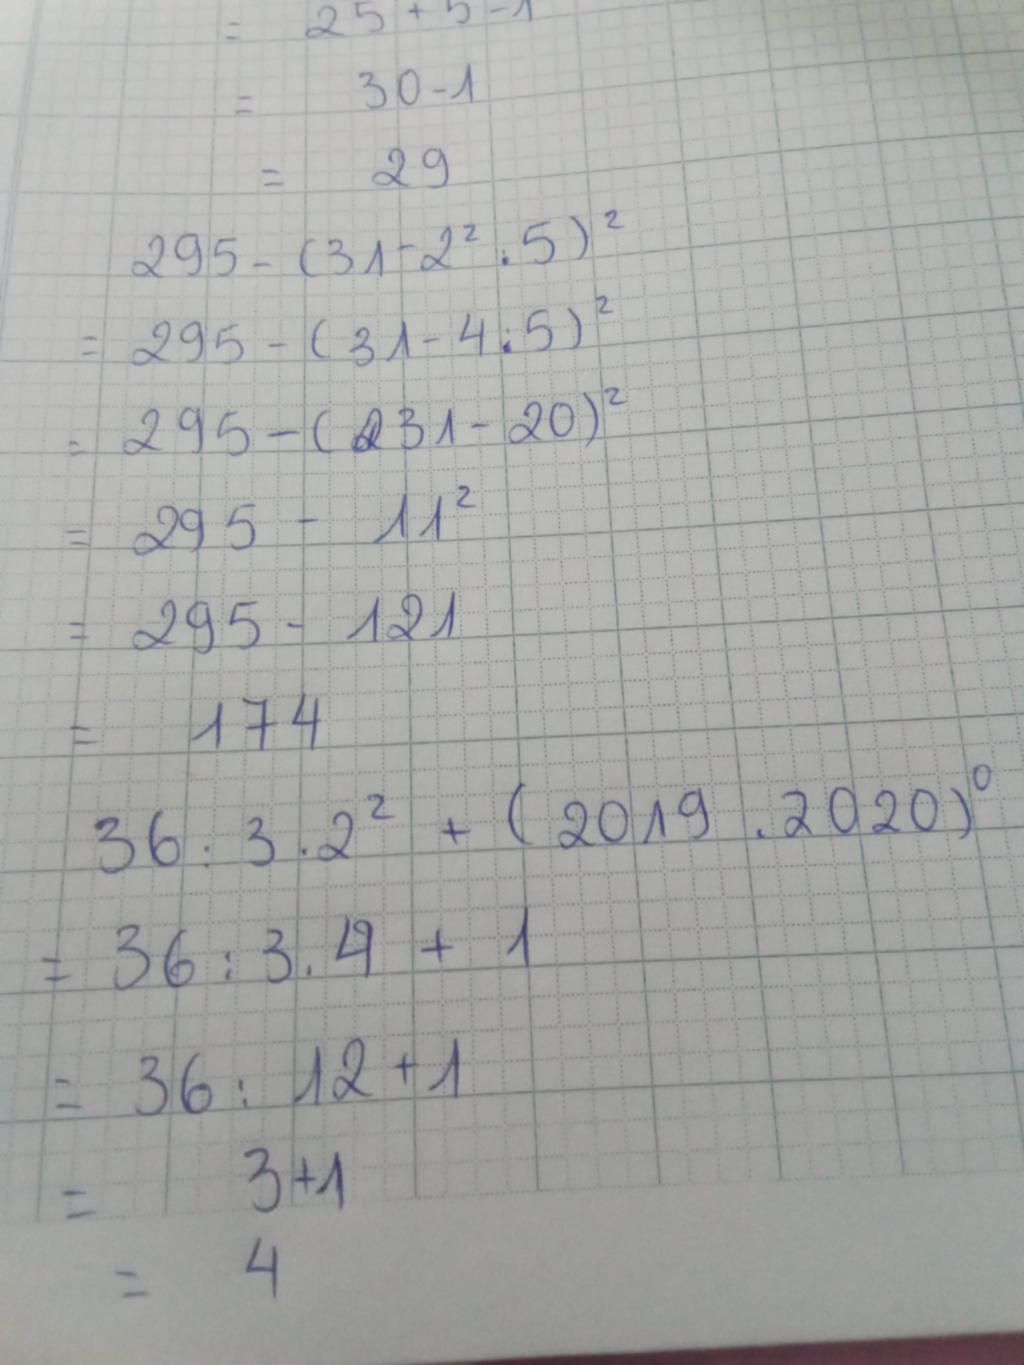 = 25 + 5 - 1
= 30 - 1
= 29
295 - (31 - 2² . 5)²
= 295 - (31 - 4 . 5)²
= 295 - (231 - 20)²
= 295 - 11²
= 295 - 121
= 174
36 : 3 . 2² + (2019 . 2020)⁰
= 36 : 3 . 4 + 1
= 36 : 12 + 1
= 3 + 1
= 4